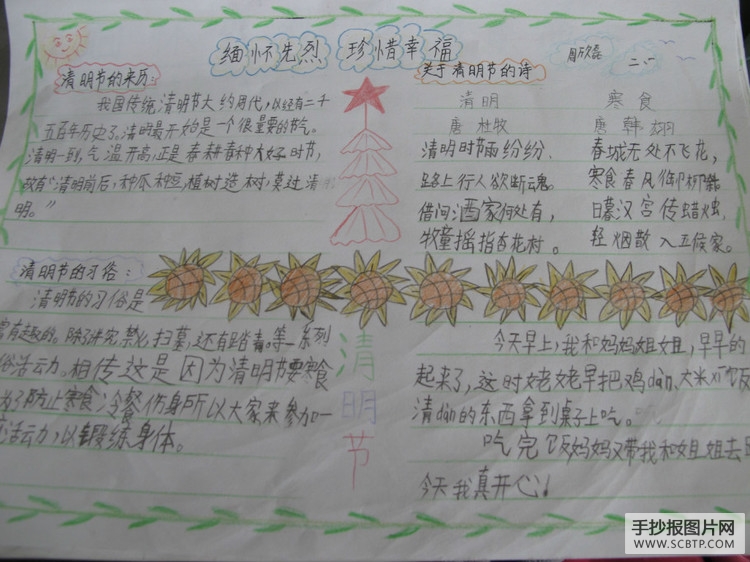 缅怀先烈 珍惜幸福
二、
清明节的来历:
我国传统清明节大约周代,以经有二千
五百年历史了,清明最开始的是一个很重要的节气。
清明一到,气温升高,正是春耕春种大好时节,
故有“清明前后,种瓜种豆,植树造树,莫过清
明。”
关于清明节的诗
清明
唐 杜牧
清明时节雨纷纷,
路上行人欲断魂。
借问酒家何处有,
牧童摇指杏花村。
寒食
唐 韩翃
春城无处不飞花,
寒食春风御柳
日暮汉宫传蜡烛,
轻烟散入五侯家。
清明节的习俗:
清明节的习俗是
富有趣的。除了讲究禁火、扫墓,还有踏青等一系列
俗活动,相传这是因为清明节要寒食
为了防止寒食冷餐伤身所以大家来参加一
活动,以锻练身体。
清明节
今天早上,我和妈妈姐姐,早早的
起来了,这时姥姥早把鸡dàn,大米
清dàn的东西拿到桌子上吃。
吃完饭妈妈又带我和姐姐去
今天我真开心!
手抄报图片网
WWW.SCBTP.COM